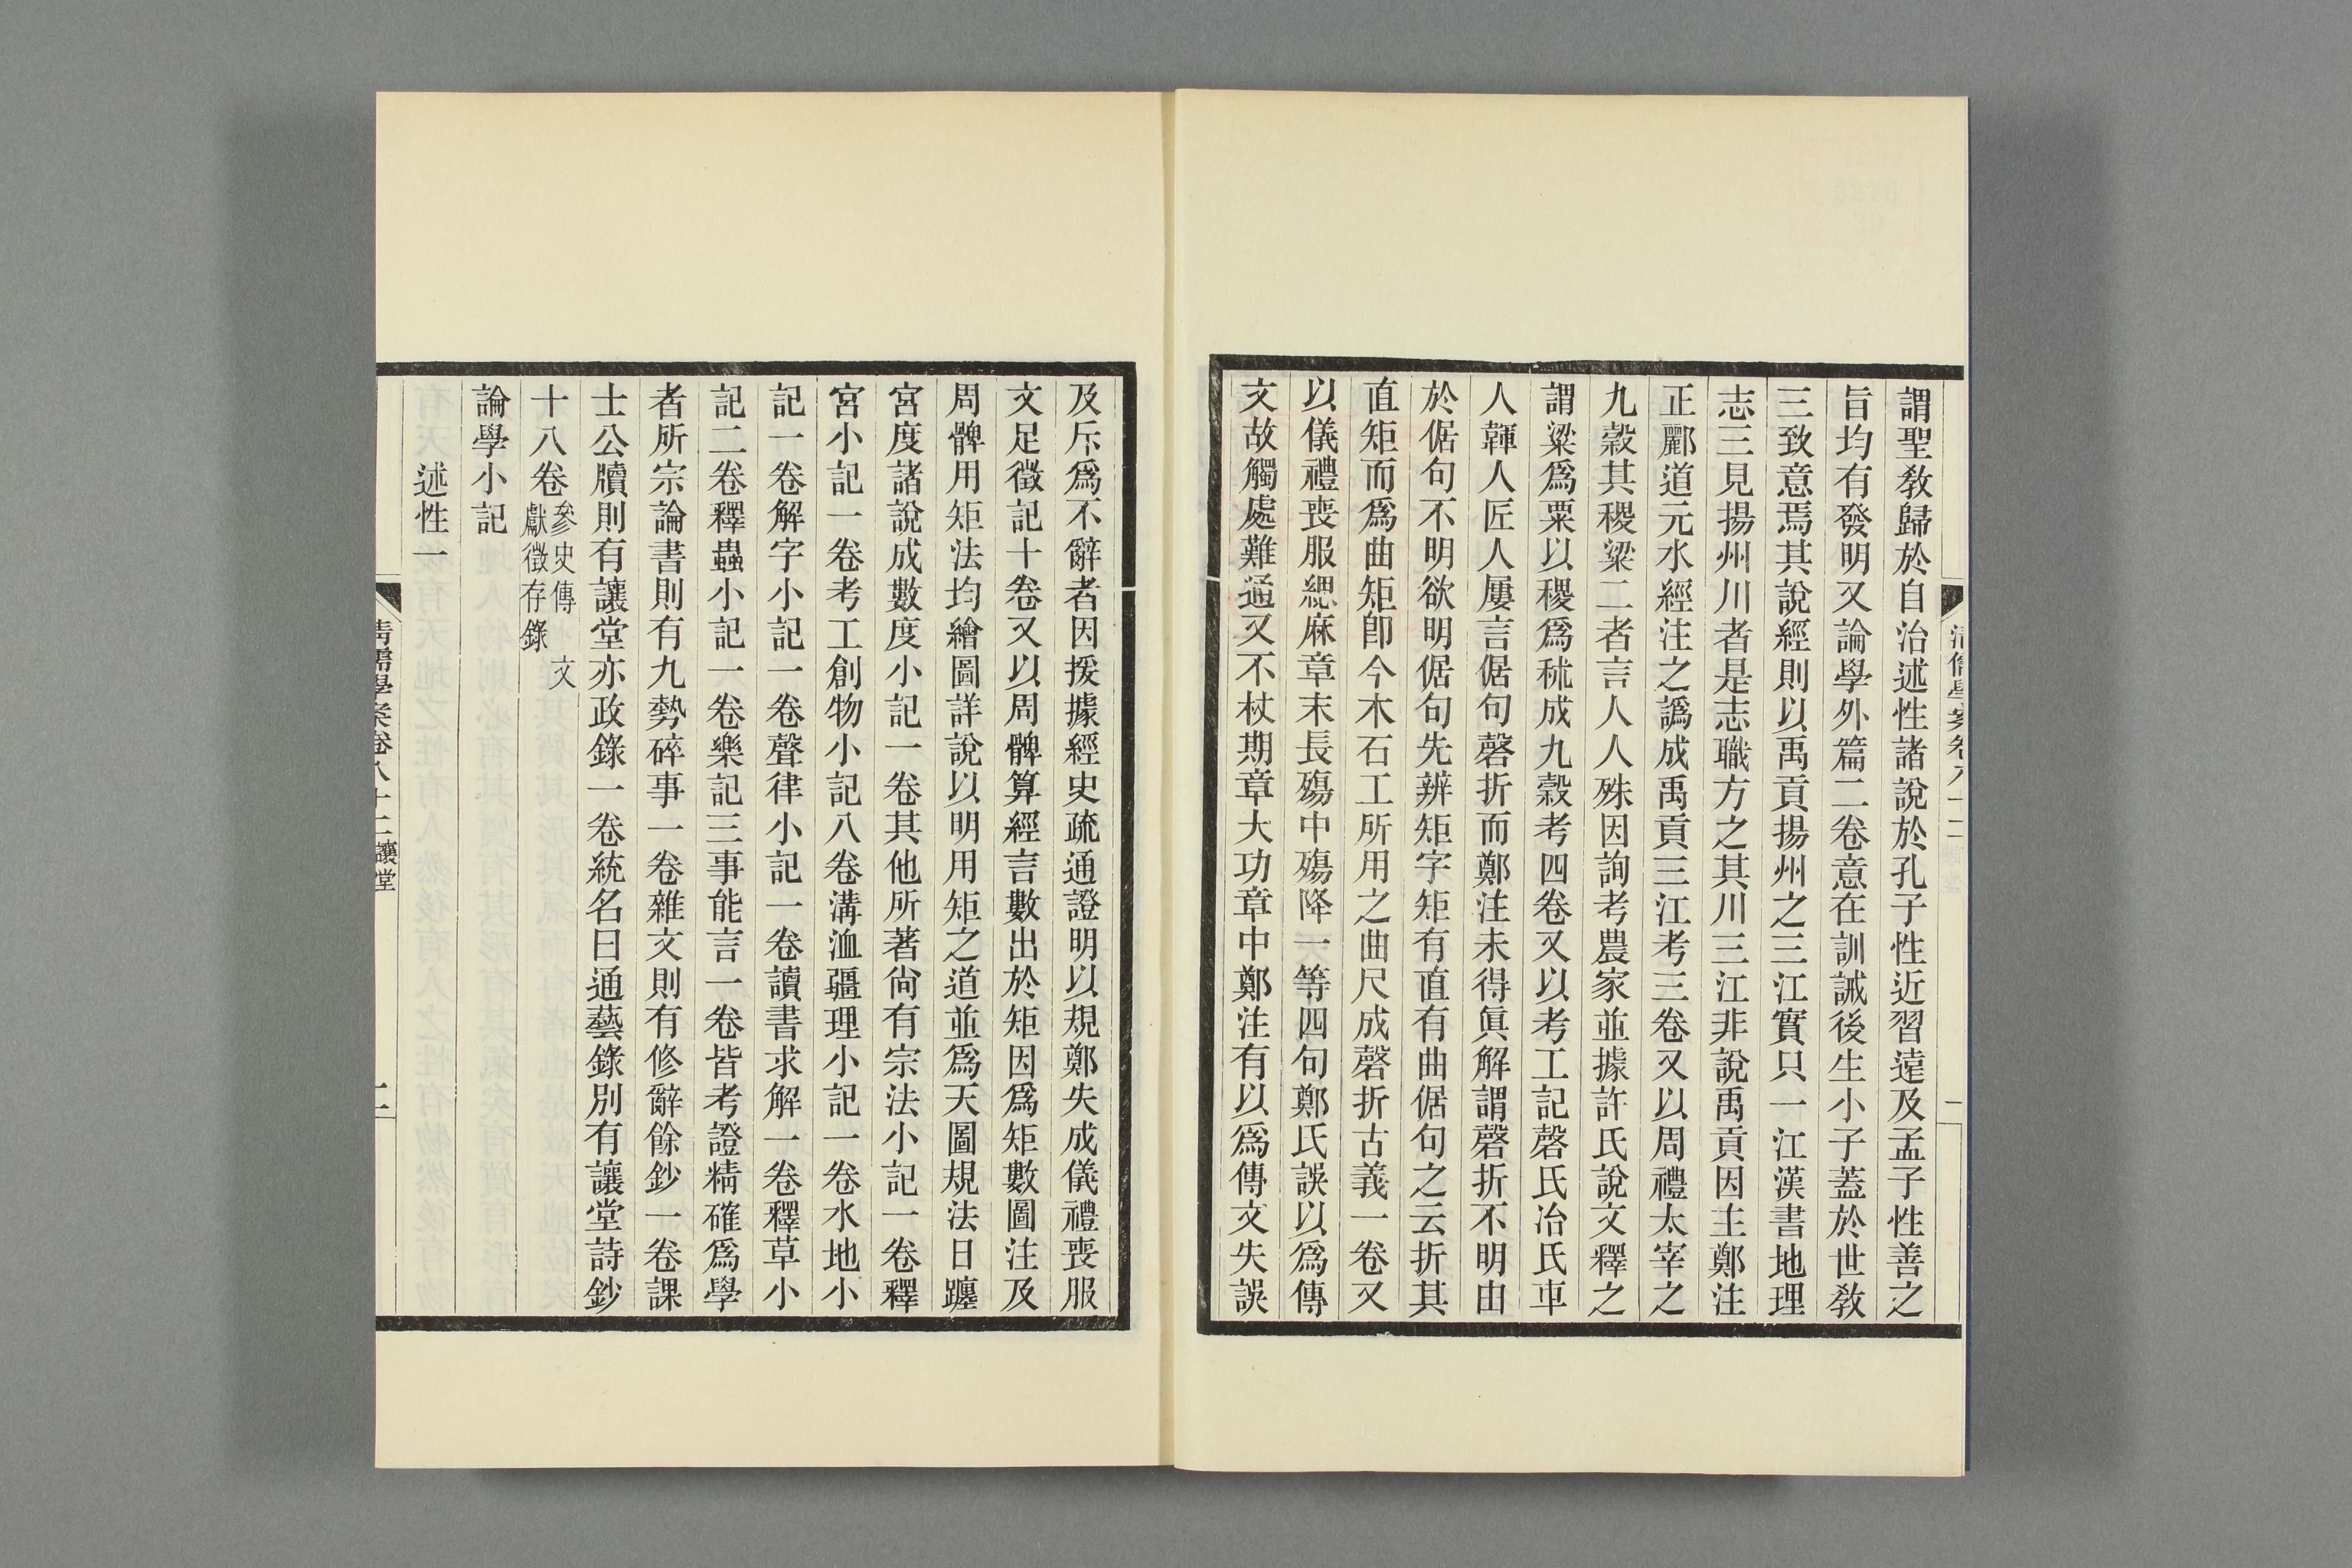 謂聖敎歸於自治述性諸說於孔子性近習遠及孟子性善之
旨均有發明又論學外篇二卷意在訓誡後生小子蓋於世敎
三致意焉其說經則以禹貢揚州之三江實只一江漢書地理
志三見揚州川者是志職方之其川三江非說禹貢因主鄭注
正酈道元水經注之譌成禹貢三江考三卷又以周禮太宰之
九穀其稷粱二者言人人殊因詢考農家並據許氏說文釋之
謂粱爲粟以稷爲秫成九穀考四卷又以考工記磬氏冶氏車
人韗人匠人屢言倨句磬折而鄭注未得眞解謂磬折不明由
於倨句不明欲明倨句先辨矩字矩有直有曲倨句之云折其
直矩而爲曲矩卽今木石工所用之曲尺成磬折古義一卷又
以儀禮喪服緦麻章末長殤中殤降一等四句鄭氏誤以爲傳
文故觸處難通又不杖期章大功章中鄭注有以爲傳文失誤
及斥爲不辭者因援據經史疏通證明以規鄭失成儀禮喪服
文足徵記十卷又以周髀算經言數出於矩因爲矩數圖注及
周髀用矩法均繪圖詳說以明用矩之道並爲天圖規法日躔
宮度諸說成數度小記一卷其他所著尙有宗法小記一卷釋
宮小記一卷考工創物小記八卷溝洫疆理小記一卷水地小
記一卷解字小記一卷聲律小記一卷讀書求解一卷釋草小
記二卷釋蟲小記一卷樂記三事能言一卷皆考證精確爲學
者所宗論書則有九勢碎事一卷雜文則有修辭餘鈔一卷課
士公牘則有讓堂亦政錄一卷統名曰通藝錄別有讓堂詩鈔
十八卷參史傳 文
獻徵存錄
論學小記
述性一
清儒學案卷八十二讓堂
二